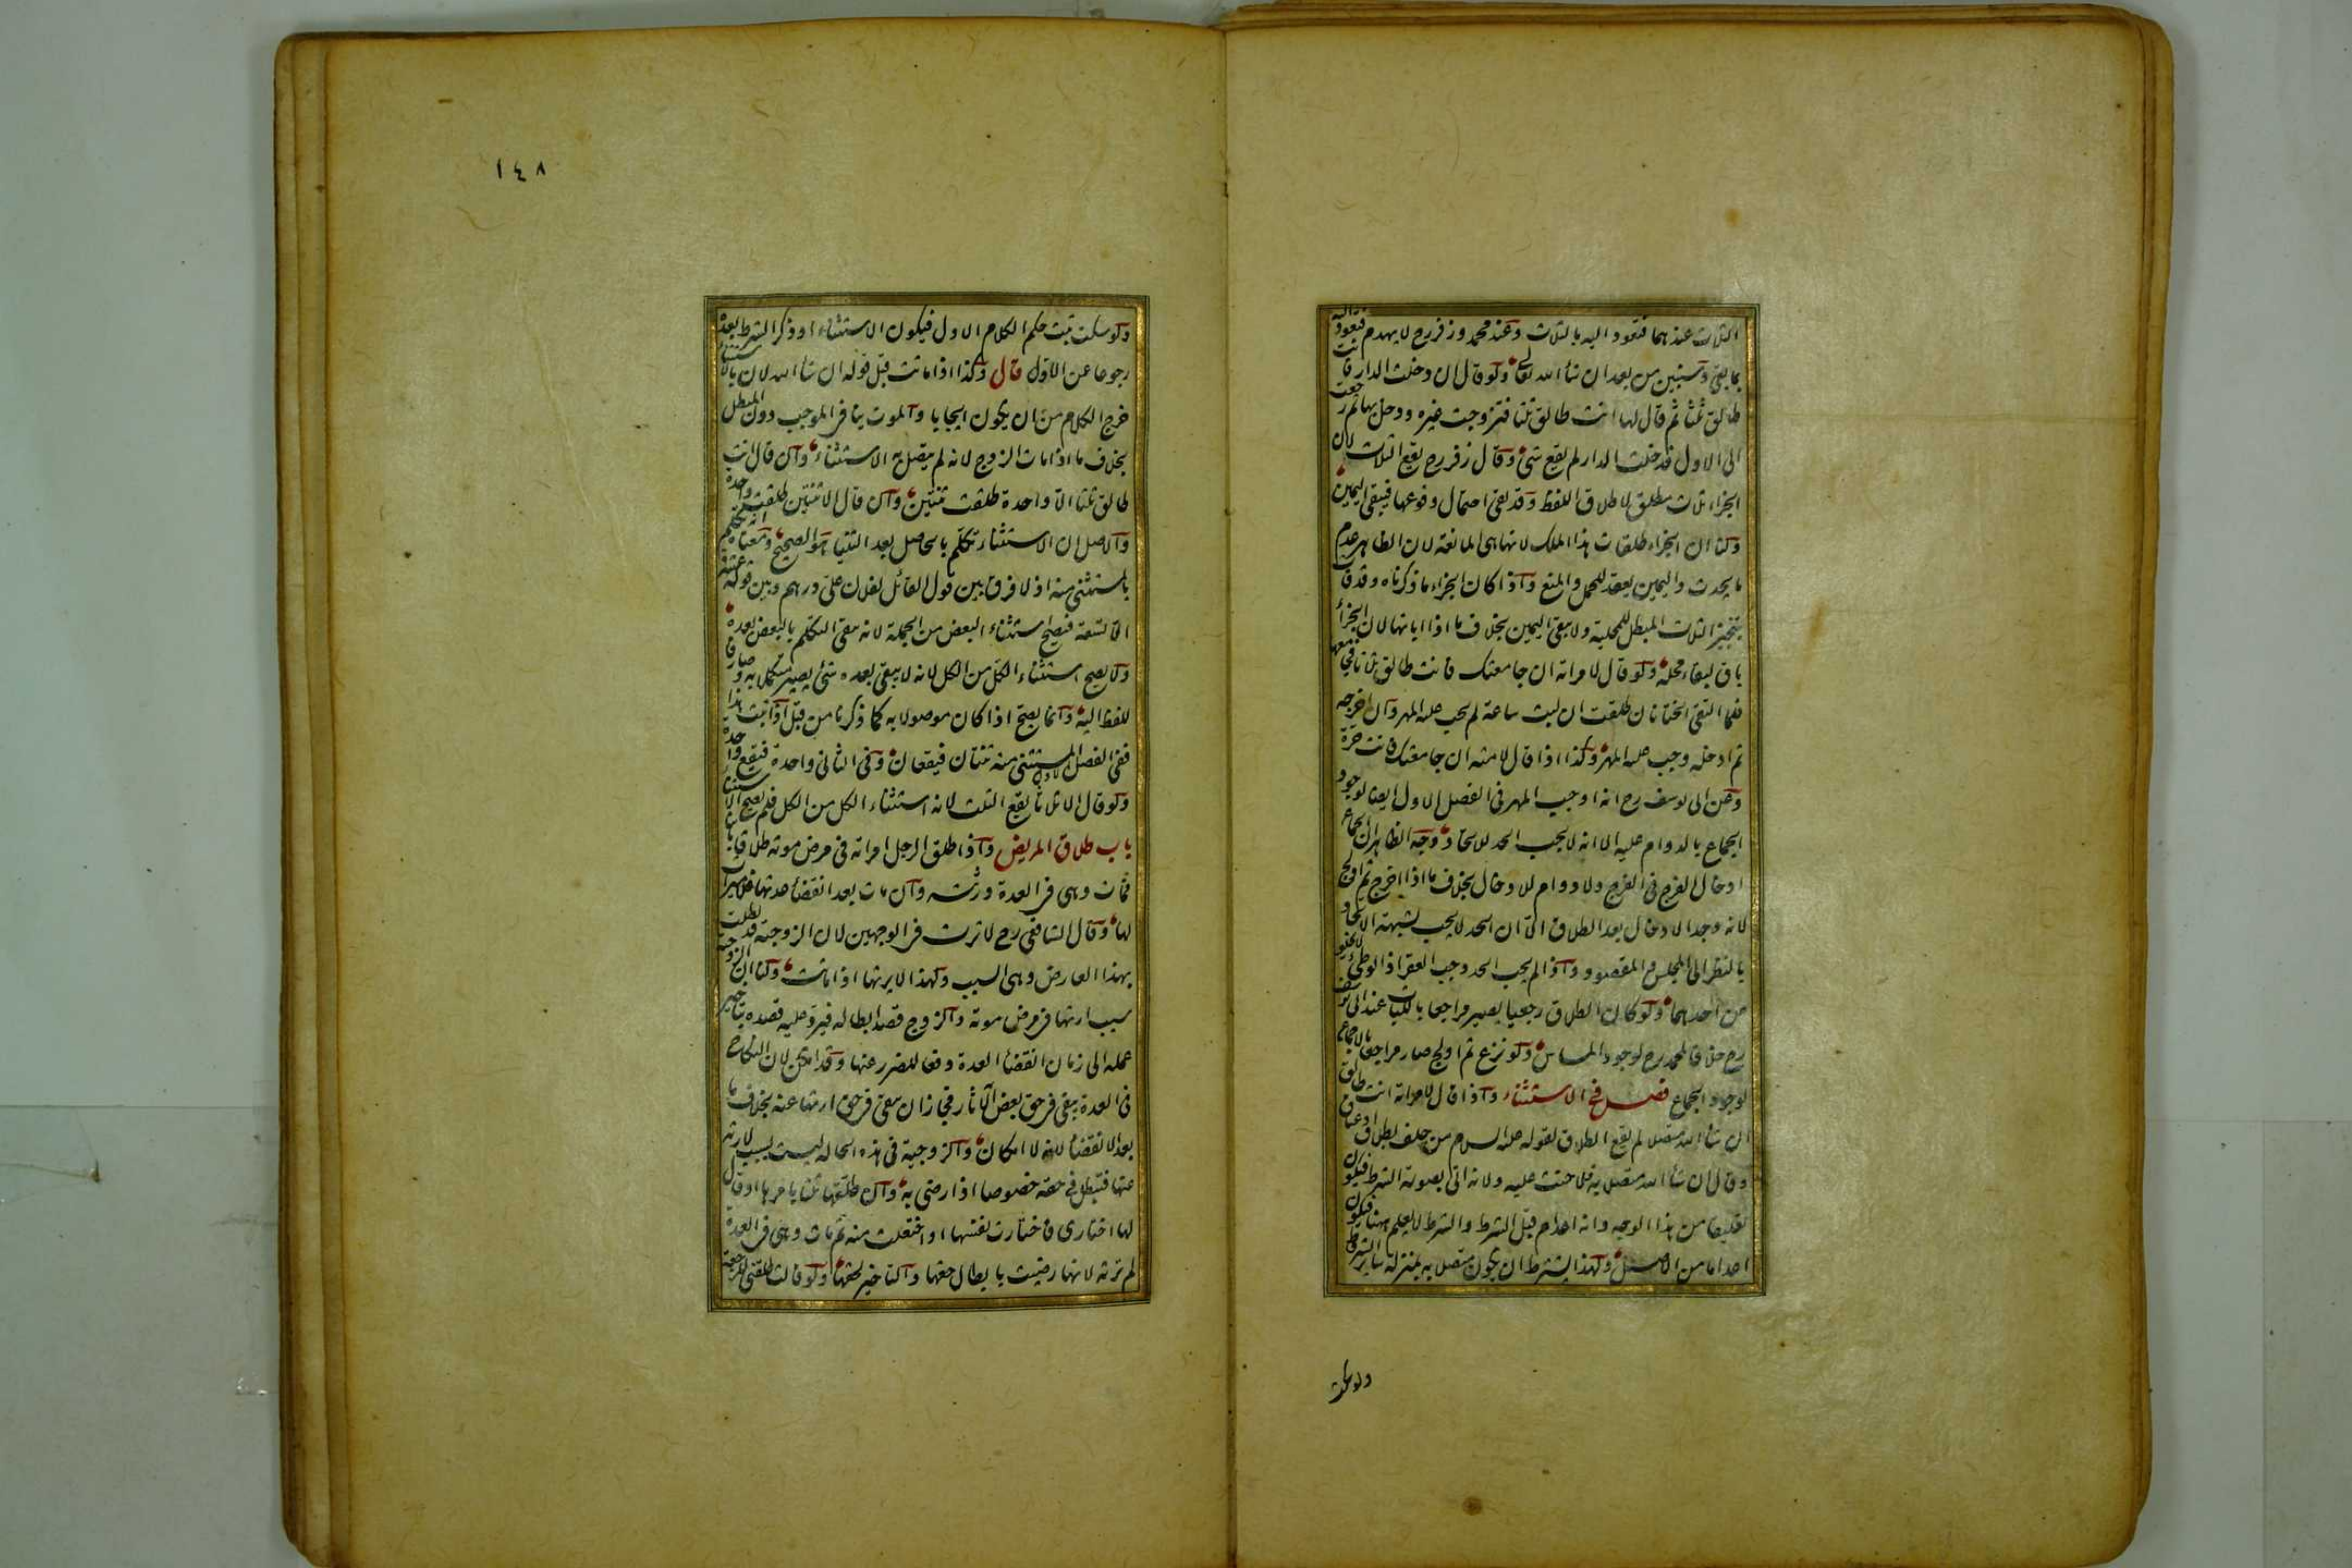 الثلاث عندهما فتعود اليه بالثلاث وعند محمد وزفر رح لا يهدم فتعود اليه
بما بقى وسنبين من بعد ان شاء الله تعالى ولو قال ان دخلت الدار فانت
طالق ثلثا ثم قال لها انت طالق ثلثا فتزوجت غيره ودخل بها ثم رجعت
الى الاول فدخلت الدار لم يقع شئ وقال زفر رح يقع الثلاث لان
الجزاء ثلاث مطلق لاطلاق اللفظ وقد بقى احتمال وقوعها فيبقى اليمين
ولنا ان الجزاء طلقات هذا الملك لانها هى المانعة لان الظاهر عدم
ما يحدث واليمين يعقد للحمل والمنع واذا كان الجزاء ما ذكرناه وقد فات
بتنجيز الثلاث المبطل للمحلية ولا يبقى اليمين بخلاف ما اذا ابانها لان الجزاء
باق لبقاء محله ولو قال لامراته ان جامعتك فانت طالق ثلاثا فجامعها
فلما التقى الختانان طلقت ان لبث ساعة لم يجب عليه المهر وان اخرجه
ثم ادخله وجب عليه المهر وكذا اذا قال لامته ان جامعتك فانت حرة
وعن ابى يوسف رح انه اوجب المهر فى الفصل الاول ايضا لوجود
الجماع بالدوام عليه الا انه لا يجب الحد للاتحاد وجه الظاهر ان الجماع
ادخال الفرج فى الفرج ولا دوام للادخال بخلاف ما اذا اخرج ثم اولج
لانه وجد الادخال بعد الطلاق الا ان الحد لا يجب لشبهة الاتحاد
بالنظر الى المجلس والمقصود واذا لم يجب الحد وجب العقر اذ الوطئ لا يخلو
من احدهما ولو كان الطلاق رجعيا يصير مراجعا باللباث عند ابى يوسف
رح خلافا لمحمد رح لوجود المساس ولو نزع ثم اولج صار مراجعا بالاجماع
لوجود الجماع فصل فى الاستثناء واذا قال لامراته انت طالق
ان شاء الله متصلا لم يقع الطلاق لقوله عليه السلام من حلف بطلاق او عتاق
وقال ان شاء الله متصلا به فلا حنث عليه ولانه اتى بصورة الشرط فيكون
تعليقا من هذا الوجه وانه اعدام قبل الشرط والشرط لا يعلم ههنا فيكون
اعداما من الاصل ولهذا يشترط ان يكون متصلا به بمنزلة ساير الشروط
ولو سكت
١٤٨
ولو سكت ثبت حكم الكلام الاول فيكون الاستثناء او ذكر الشرط بعده
رجوعا عن الاول قال وكذا اذا ماتت قبل قوله ان شاء الله لان بالاستثناء
خرج الكلام من ان يكون ايجابا والموت ينافى الموجب دون المبطل
بخلاف ما اذا مات الزوج لانه لم يتصل به الاستثناء وان قال انت
طالق ثلثا الا واحدة طلقت ثنتين وان قال الا ثنتين طلقت واحدة
والاصل ان الاستثناء تكلم بالحاصل بعد الثنيا هو الصحيح ومعناه انه تكلم
بالمستثنى منه اذ لا فرق بين قول القائل لفلان على درهم وبين قوله عشرة
الا تسعة فيصح استثناء البعض من الجملة لانه يبقى التكلم بالبعض بعده
ولا يصح استثناء الكل من الكل لانه لا يبقى بعده شئ ليصير متكلما به وصارفا
للفظ اليه وانما يصح اذا كان موصولا به كما ذكرنا من قبل اذا ثبت هذا
ففى الفصل الاول المستثنى منه ثنتان فيقعان وفى الثانى واحدة فيقع واحدة
ولو قال الا ثلاثا يقع الثلث لانه استثناء الكل من الكل فلم يصح الاستثناء
باب طلاق المريض واذا طلق الرجل امراته فى مرض موته طلاقا بائنا
فمات وهى فى العدة ورثته وان مات بعد انقضاء عدتها فلا ميراث
لها وقال الشافعى رح لا ترث فى الوجهين لان الزوجية قد بطلت
بهذا العارض وهى السبب ولهذا لا يرثها اذا ماتت ولنا ان الزوجية
سبب ارثها فى مرض موته والزوج قصد ابطاله فيرد عليه قصده بتاخير
عمله الى زمان انقضاء العدة دفعا للضرر عنها وقد امكن لان النكاح
فى العدة يبقى فى حق بعض الآثار فجاز ان يبقى فى حق ارثها عنه بخلاف ما
بعد الانقضاء لانه لا امكان والزوجية فى هذه الحالة ليست بسبب لارثه
عنها فتبطل فى حقه خصوصا اذا رضى به وان طلقها ثلثا بامرها او قال
لها اختارى فاختارت نفسها او اختلعت منه ثم مات وهى فى العدة
لم ترثه لانها رضيت بابطال حقها والتاخير لحقها ولو قالت طلقنى للرجعة